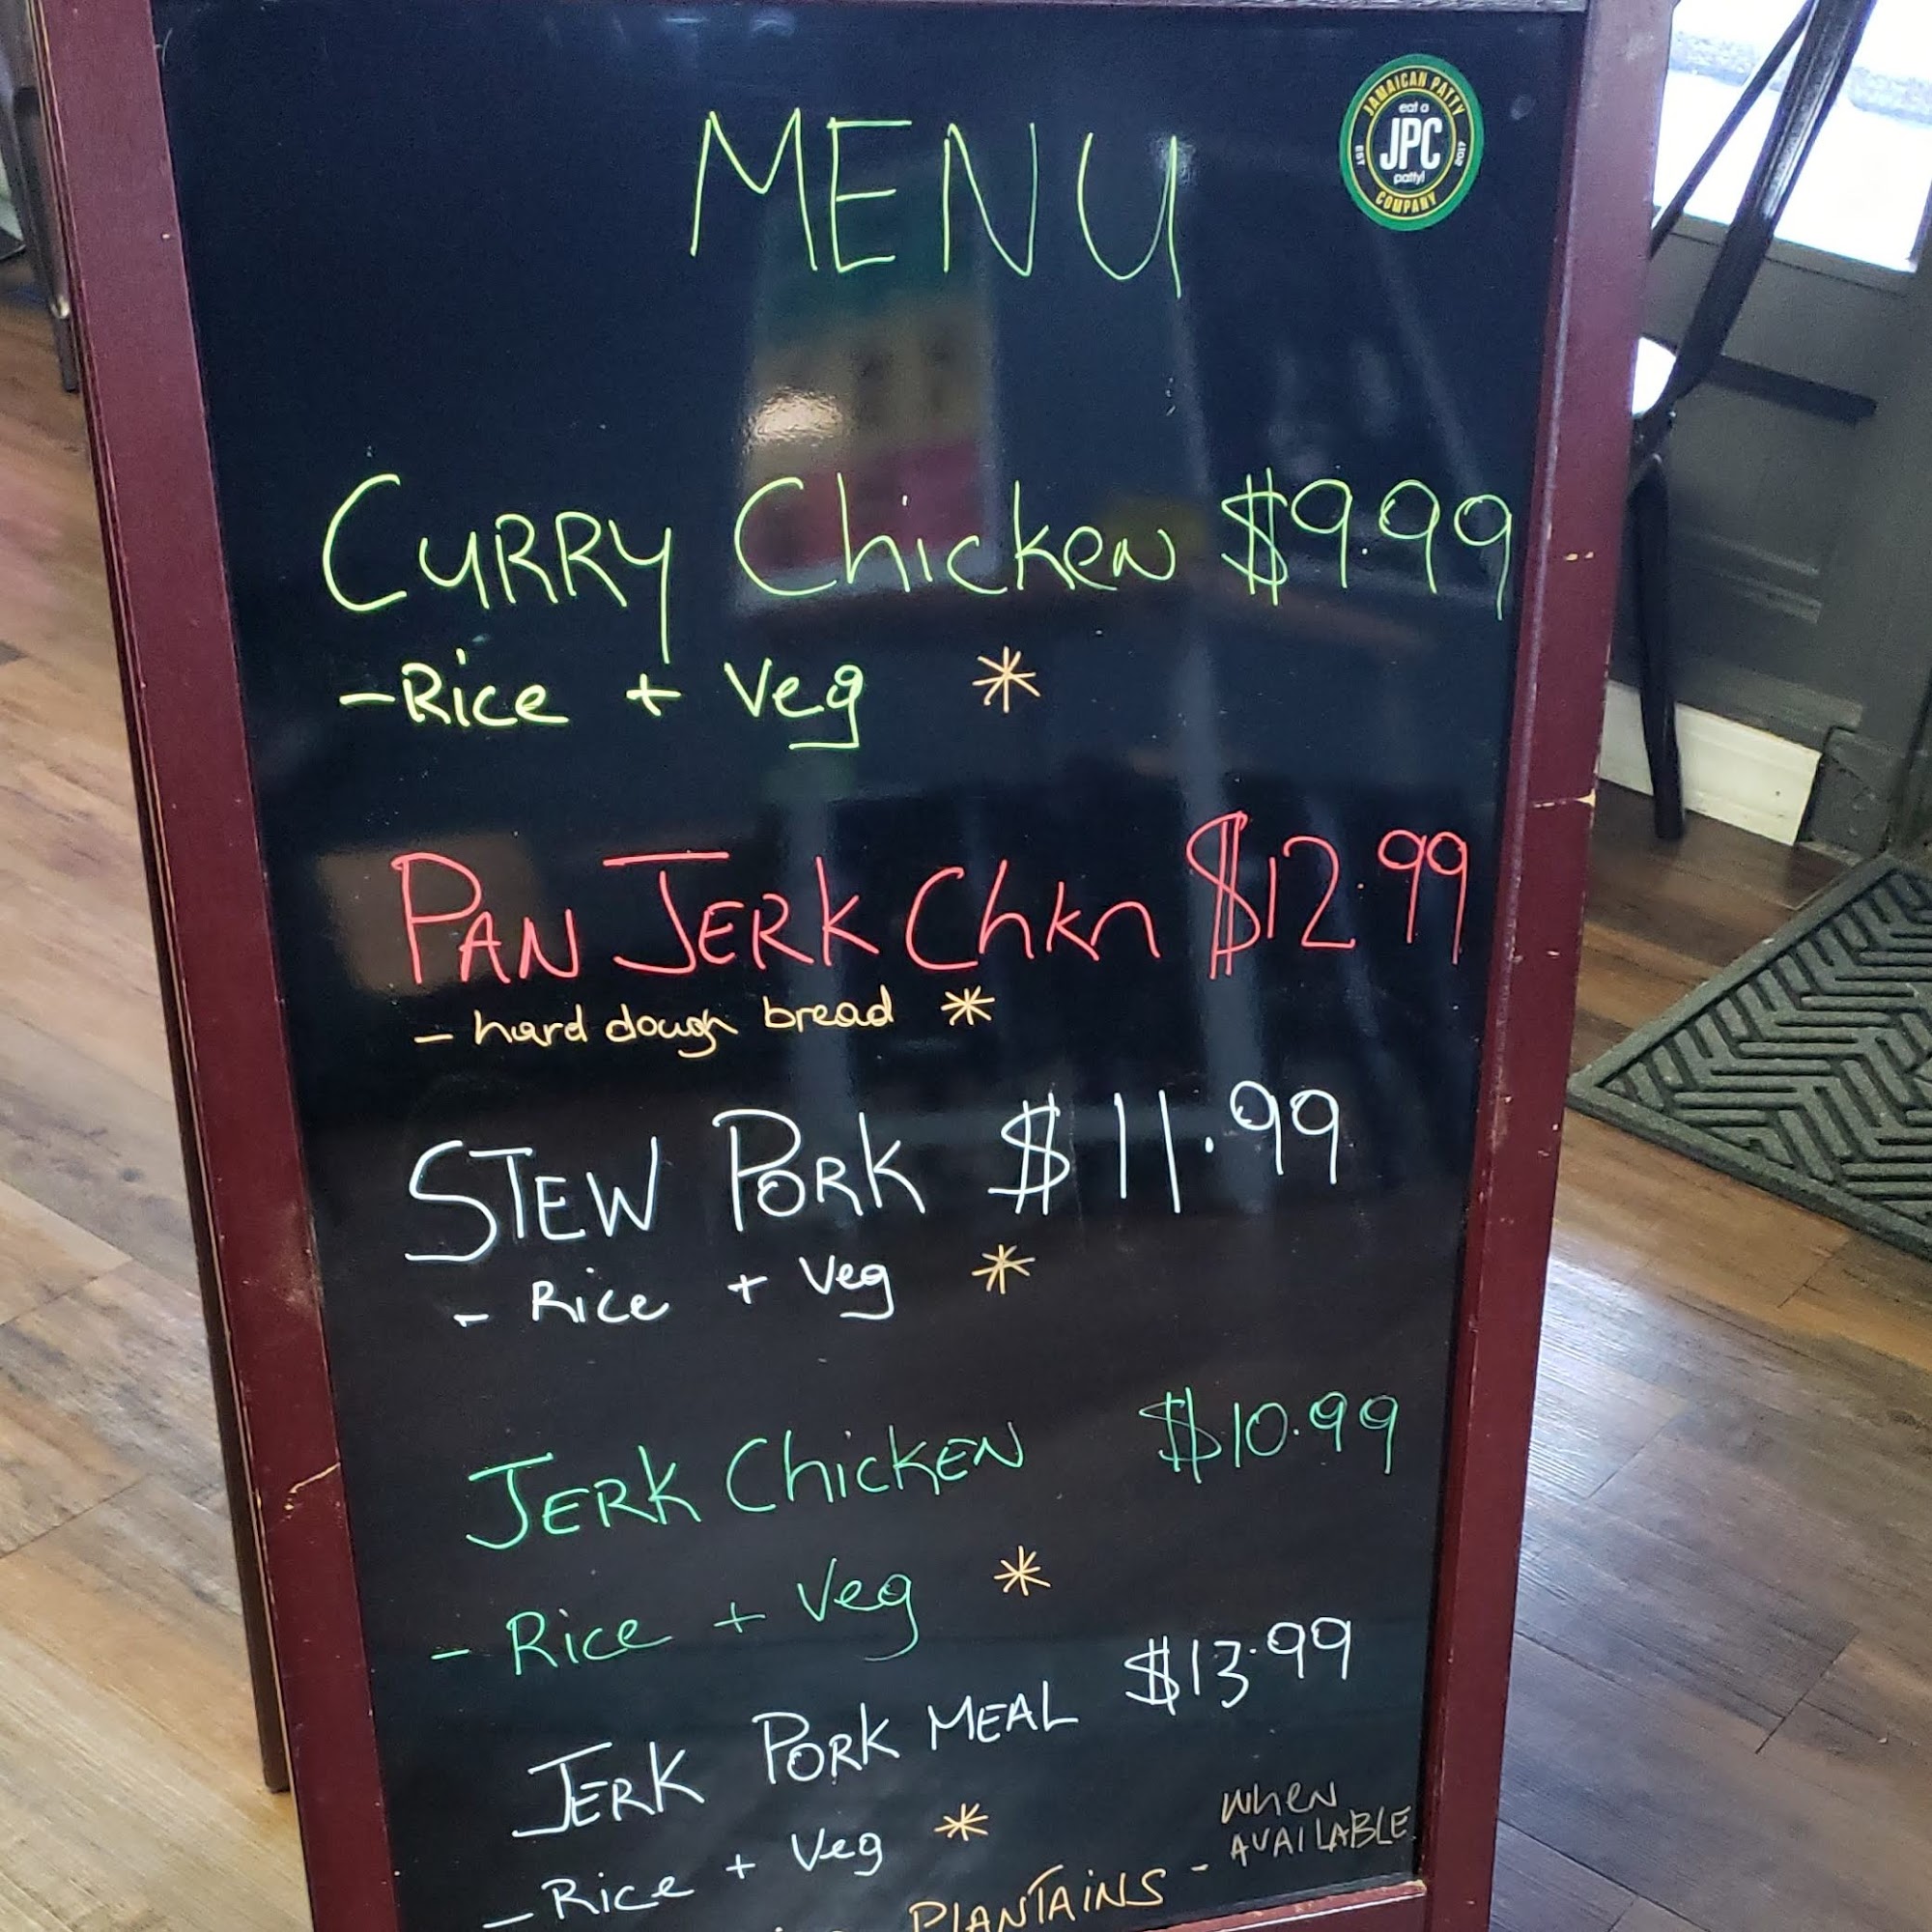 MENU
JAMAICAN PATTY
eat a
EST JPC 2017
patty!
COMPANY
CURRY Chicken $9.99
- Rice + Veg *
PAN JERK Chkn $12.99
- hard dough bread *
STEW PORK $11.99
- Rice + Veg *
JERK ChicKEN $10.99
- Rice + Veg *
JERK PORK MEAL $13.99
- Rice + Veg *
PLANTAINS - when
AVAILABLE